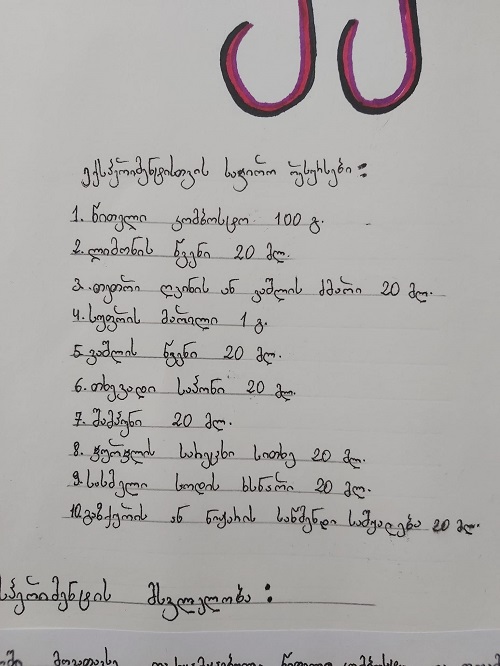 ექსპერიმენტისთვის საჭირო რესურსები:
1. წითელი კომბოსტო 100 გ.
2. ლიმონის წვენი 20 მლ.
3. თეთრი ღვინის ან ვაშლის ძმარი 20 მლ.
4. სუფრის მარილი 1 გ.
5. ვაშლის წვენი 20 მლ.
6. თხევადი საპონი 20 მლ.
7. შამპუნი 20 მლ.
8. ჭურჭლის სარეცხი სითხე 20 მლ.
9. სასმელი სოდის ხსნარი 20 მლ.
10. გაზქურის ან ნიჟარის საწმენდი საშუალება 20 მლ.
სპერიმენტის მსვლელობა: